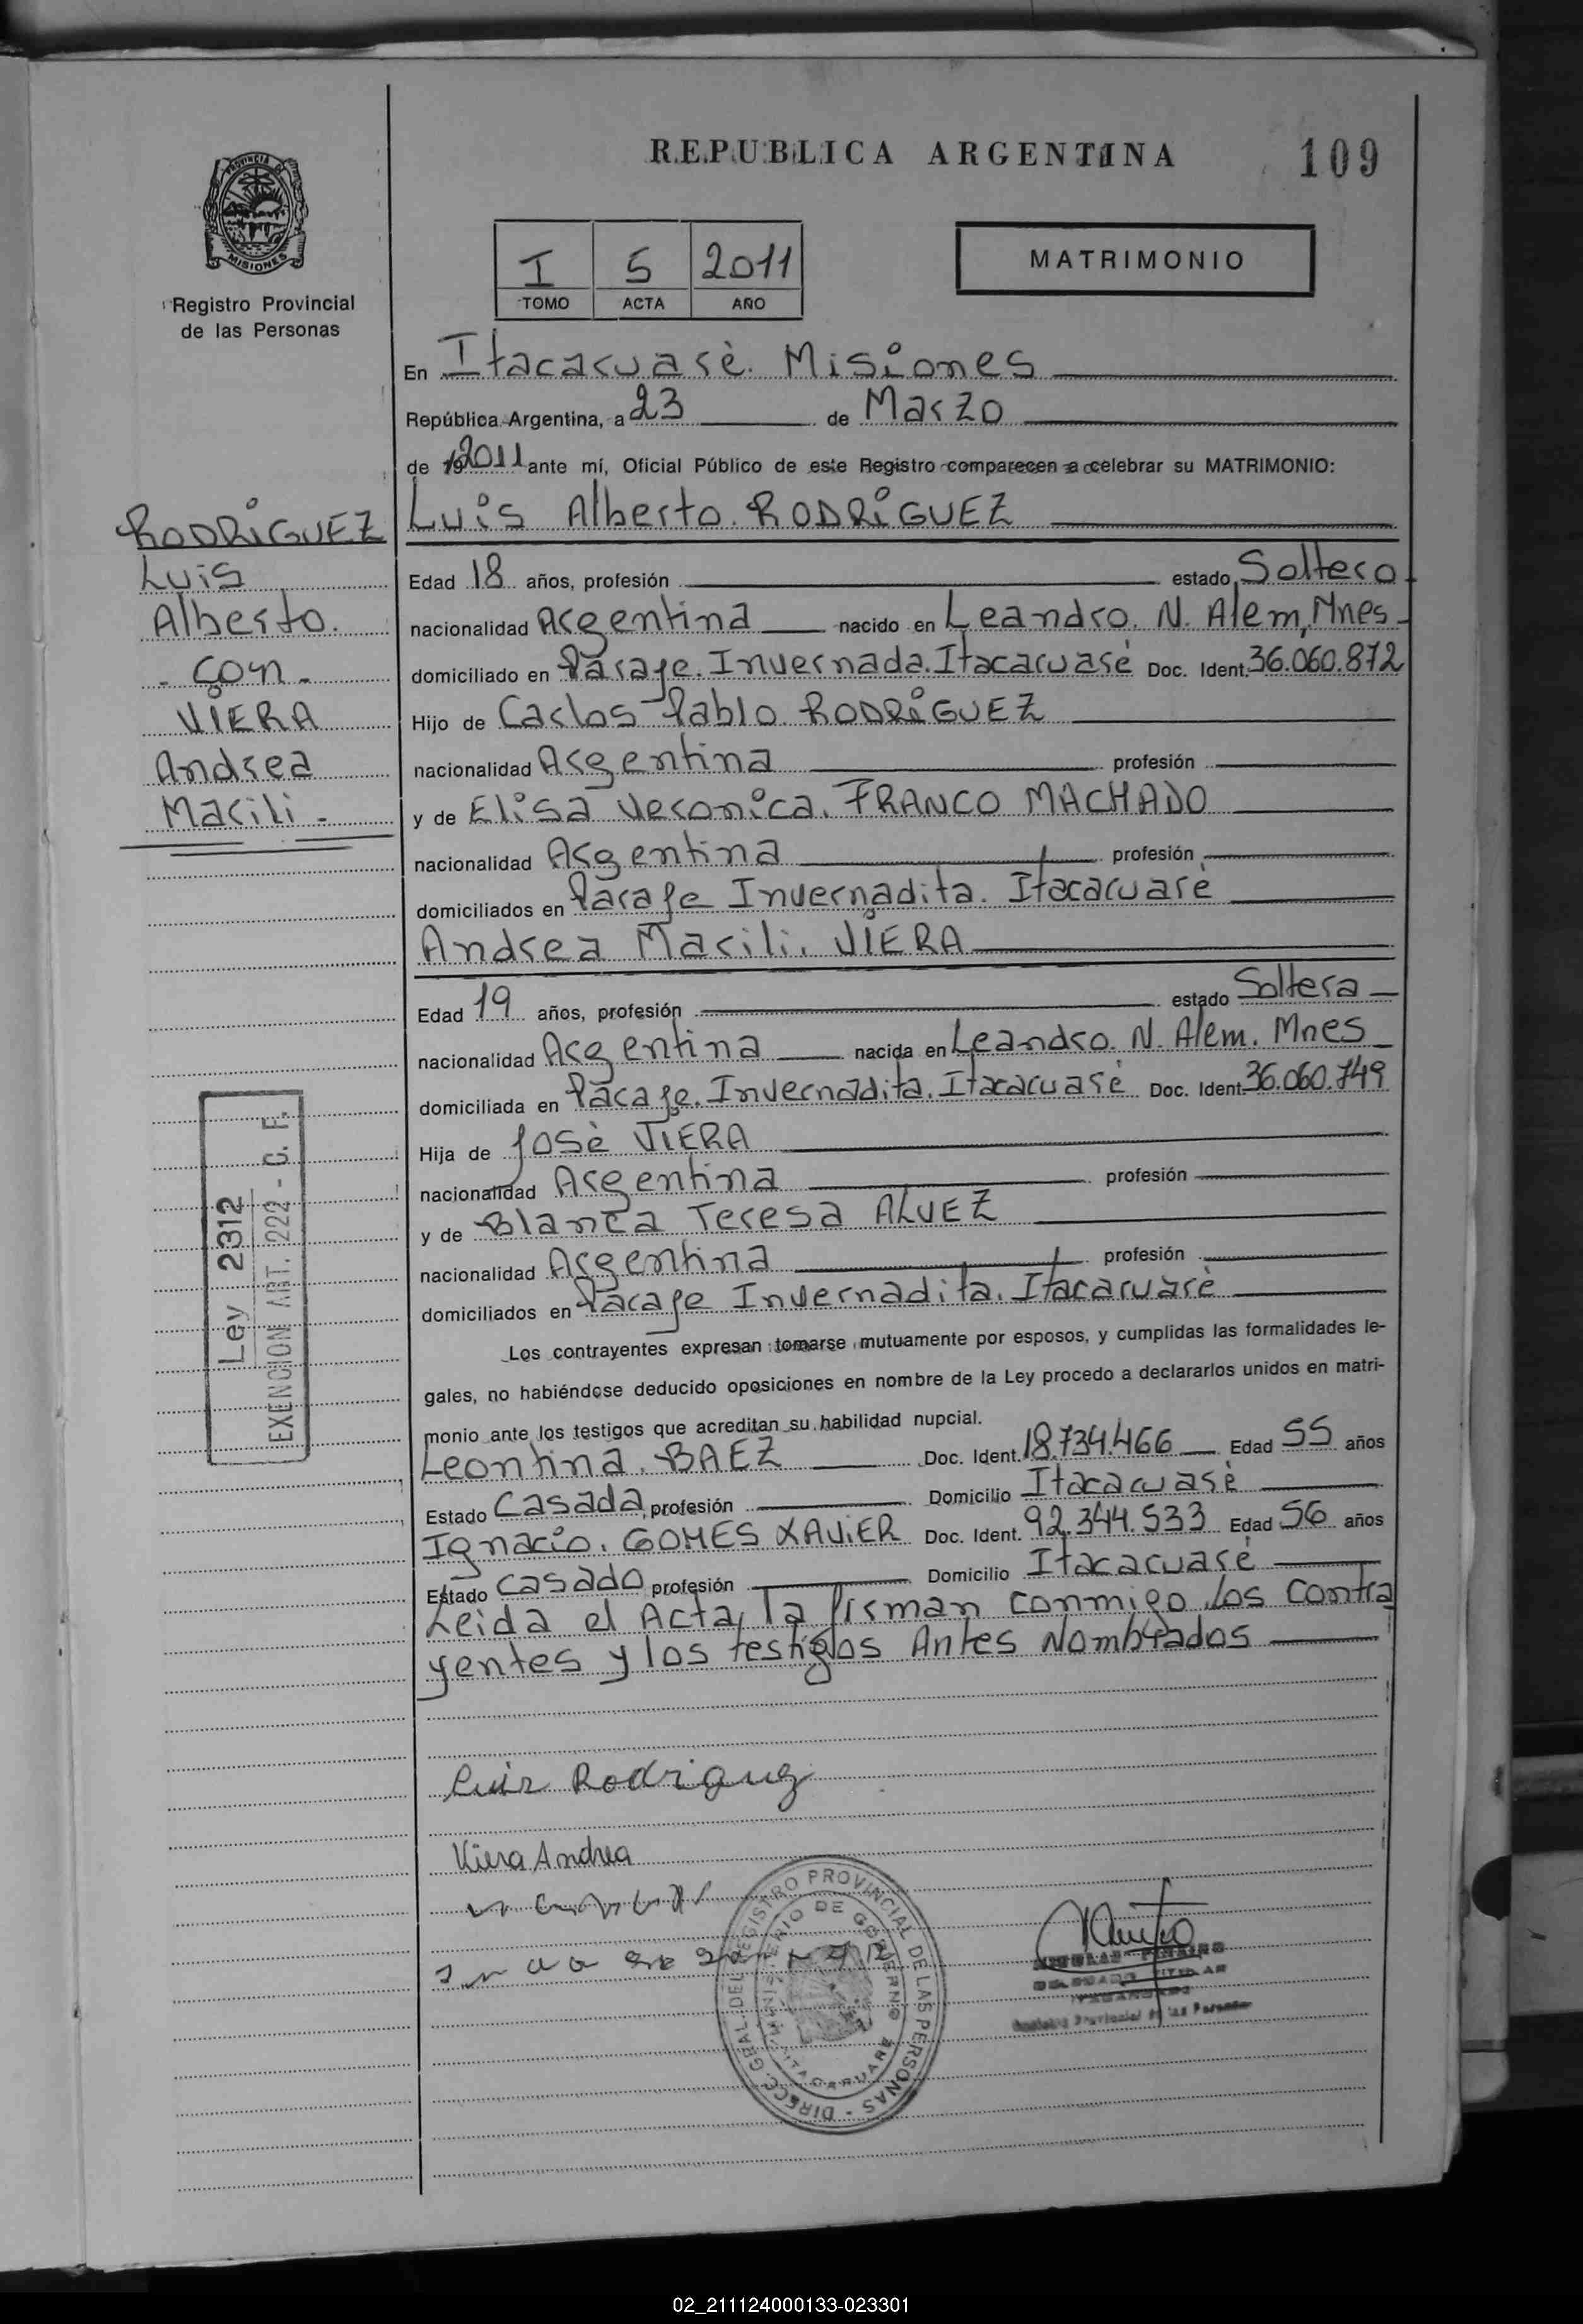 REPUBLICA ARGENTINA 109
PROVINCIA DE MISIONES
Registro Provincial
de las Personas
I 5 2011
TOMO ACTA AÑO
MATRIMONIO
En Itacaruarè. Misiones
República Argentina, a 23 de Marzo
de 2011 ante mí, Oficial Público de este Registro comparecen a celebrar su MATRIMONIO:
Luis Alberto. RODRIGUEZ
Edad 18 años, profesión estado Soltero
nacionalidad Argentina nacido en Leandro. N. Alem, Mnes
domiciliado en Paraje. Invernada. Itacaruaré Doc. Ident. 36.060.872
Hijo de Carlos Pablo RODRIGUEZ
nacionalidad Argentina profesión
y de Elisa Veronica. FRANCO MACHADO
nacionalidad Argentina profesión
domiciliados en Paraje Invernadita. Itacaruarè
Andrea Marili. VIERA
Edad 19 años, profesión estado Soltera
nacionalidad Argentina nacida en Leandro. N. Alem. Mnes
domiciliada en Paraje. Invernadita. Itacaruarè Doc. Ident. 36.060.749
Hija de Josè VIERA
nacionalidad Argentina profesión
y de Blanca Teresa ALVEZ
nacionalidad Argentina profesión
domiciliados en Paraje Invernadita. Itacaruarè
Los contrayentes expresan tomarse mutuamente por esposos, y cumplidas las formalidades le-
gales, no habiéndose deducido oposiciones en nombre de la Ley procedo a declararlos unidos en matri-
monio ante los testigos que acreditan su habilidad nupcial.
Leontina. BAEZ Doc. Ident. 18.734.466 Edad 55 años
Estado Casada profesión Domicilio Itacaruarè
Ignacio. GOMES XAVIER Doc. Ident. 92.344.533 Edad 56 años
Estado Casado profesión Domicilio Itacaruarè
Leida el Acta, la firman conmigo los contra
yentes y los testigos Antes Nombrados
RODRIGUEZ
Luis
Alberto.
- con -
VIERA
Andrea
Marili -
Ley 2312
EXENCION ART. 222 - C. F.
Luis Rodriguez
Viera Andrea
DIRECC. GRAL. DEL REGISTRO PROVINCIAL DE LAS PERSONAS -
MINISTERIO DE GOBIERNO
ITACARUARE
02_211124000133-023301